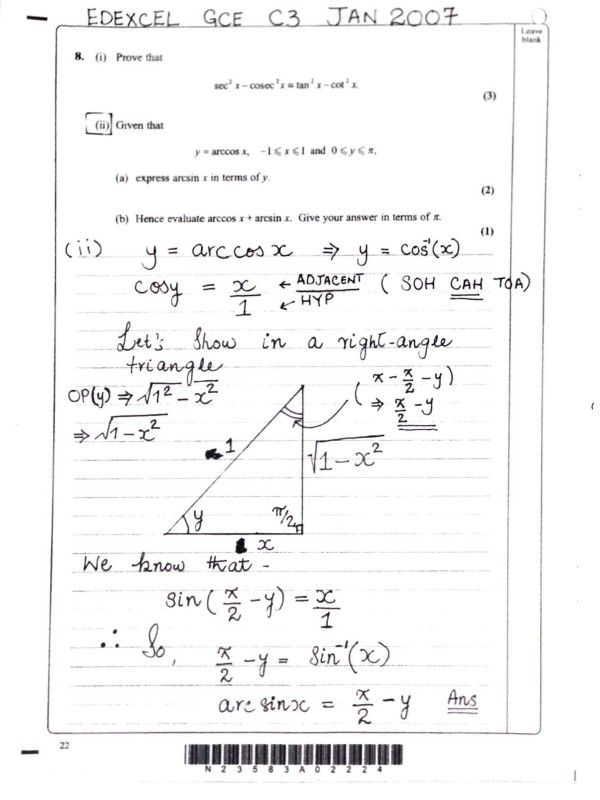 EDEXCEL GCE C3 JAN 2007
Leave
blank
8. (i) Prove that
sec² x – cosec² x ≡ tan² x – cot² x.
(3)
(ii) Given that
y = arccos x, –1 ⩽ x ⩽ 1 and 0 ⩽ y ⩽ π,
(a) express arcsin x in terms of y.
(2)
(b) Hence evaluate arccos x + arcsin x. Give your answer in terms of π.
(1)
(ii) y = arccos x ⇒ y = cos⁻¹(x)
cosy = x/1 ← ADJACENT ← HYP ( SOH CAH TOA)
Let's show in a right-angle
triangle
OP(y) ⇒ √1² – x²
⇒ √1 – x²
(π – π/2 – y)
⇒ π/2 – y
1
√1 – x²
y
π/2
x
We know that -
sin(π/2 – y) = x/1
∴ So, π/2 – y = sin⁻¹(x)
arcsinx = π/2 – y Ans
22
N23583A02224